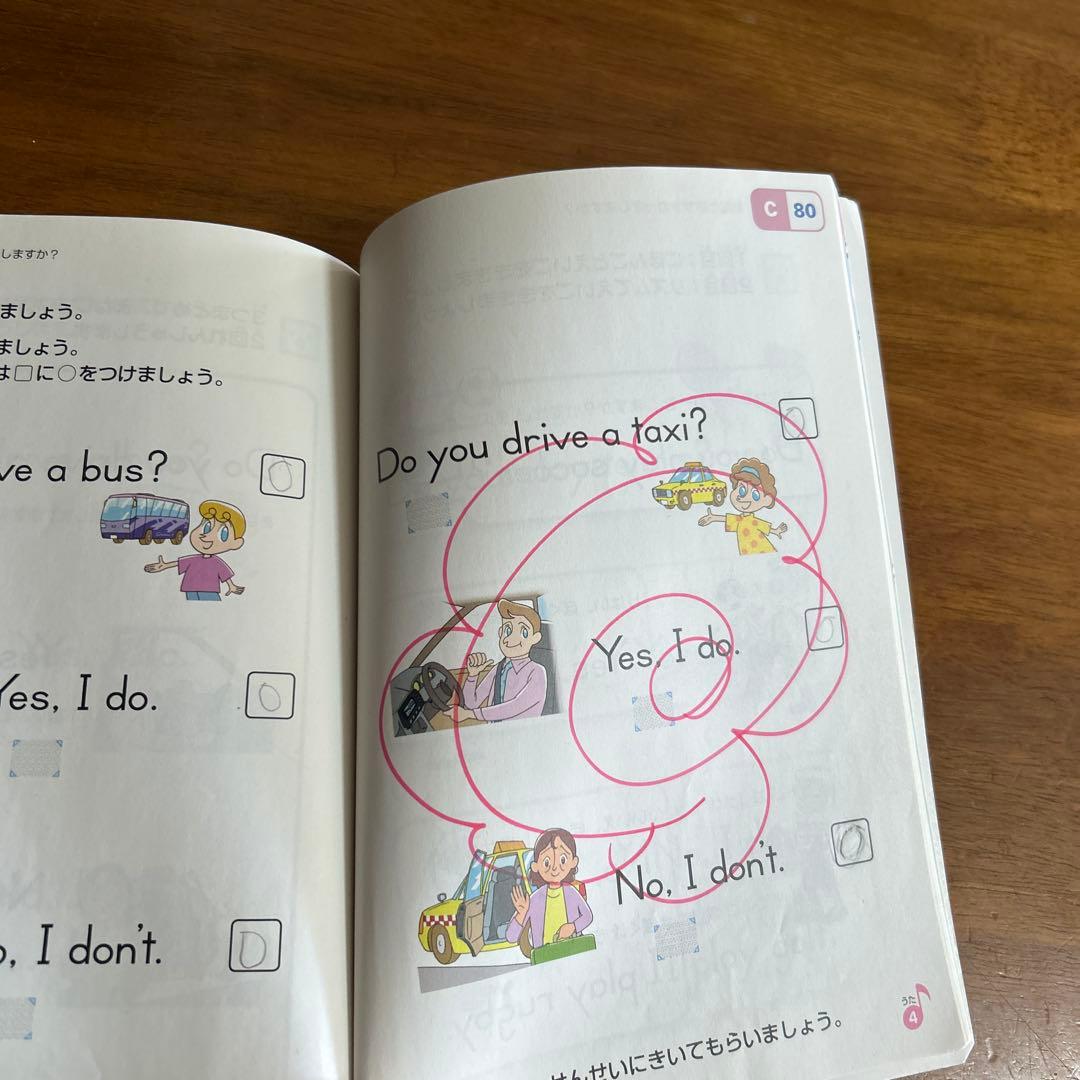 しますか?
ましょう。
ましょう。
は□に○をつけましょう。
ve a bus?
Yes, I do.
o, I don't.
C 80
Do you drive a taxi?
Yes, I do.
No, I don't.
せんせいにきいてもらいましょう。
うた
4